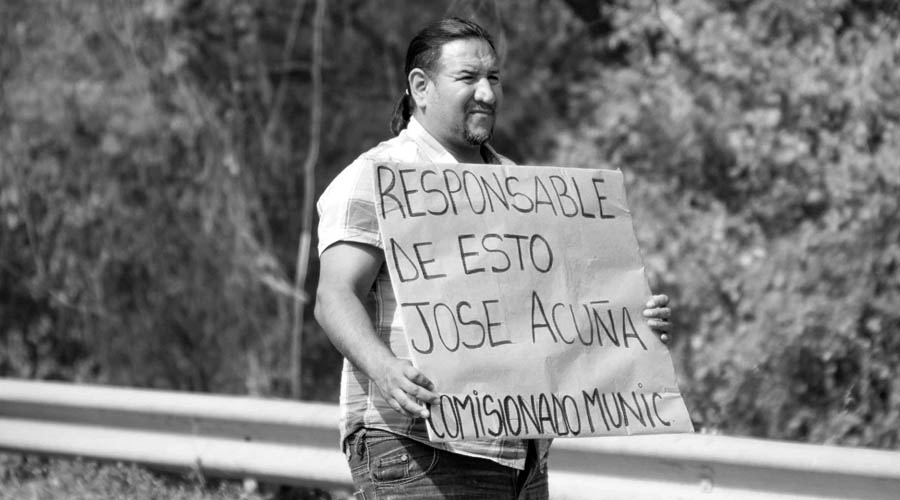 RESPONSABLE
DE ESTO
JOSE ACUÑA
COMISIONADO MUNIC